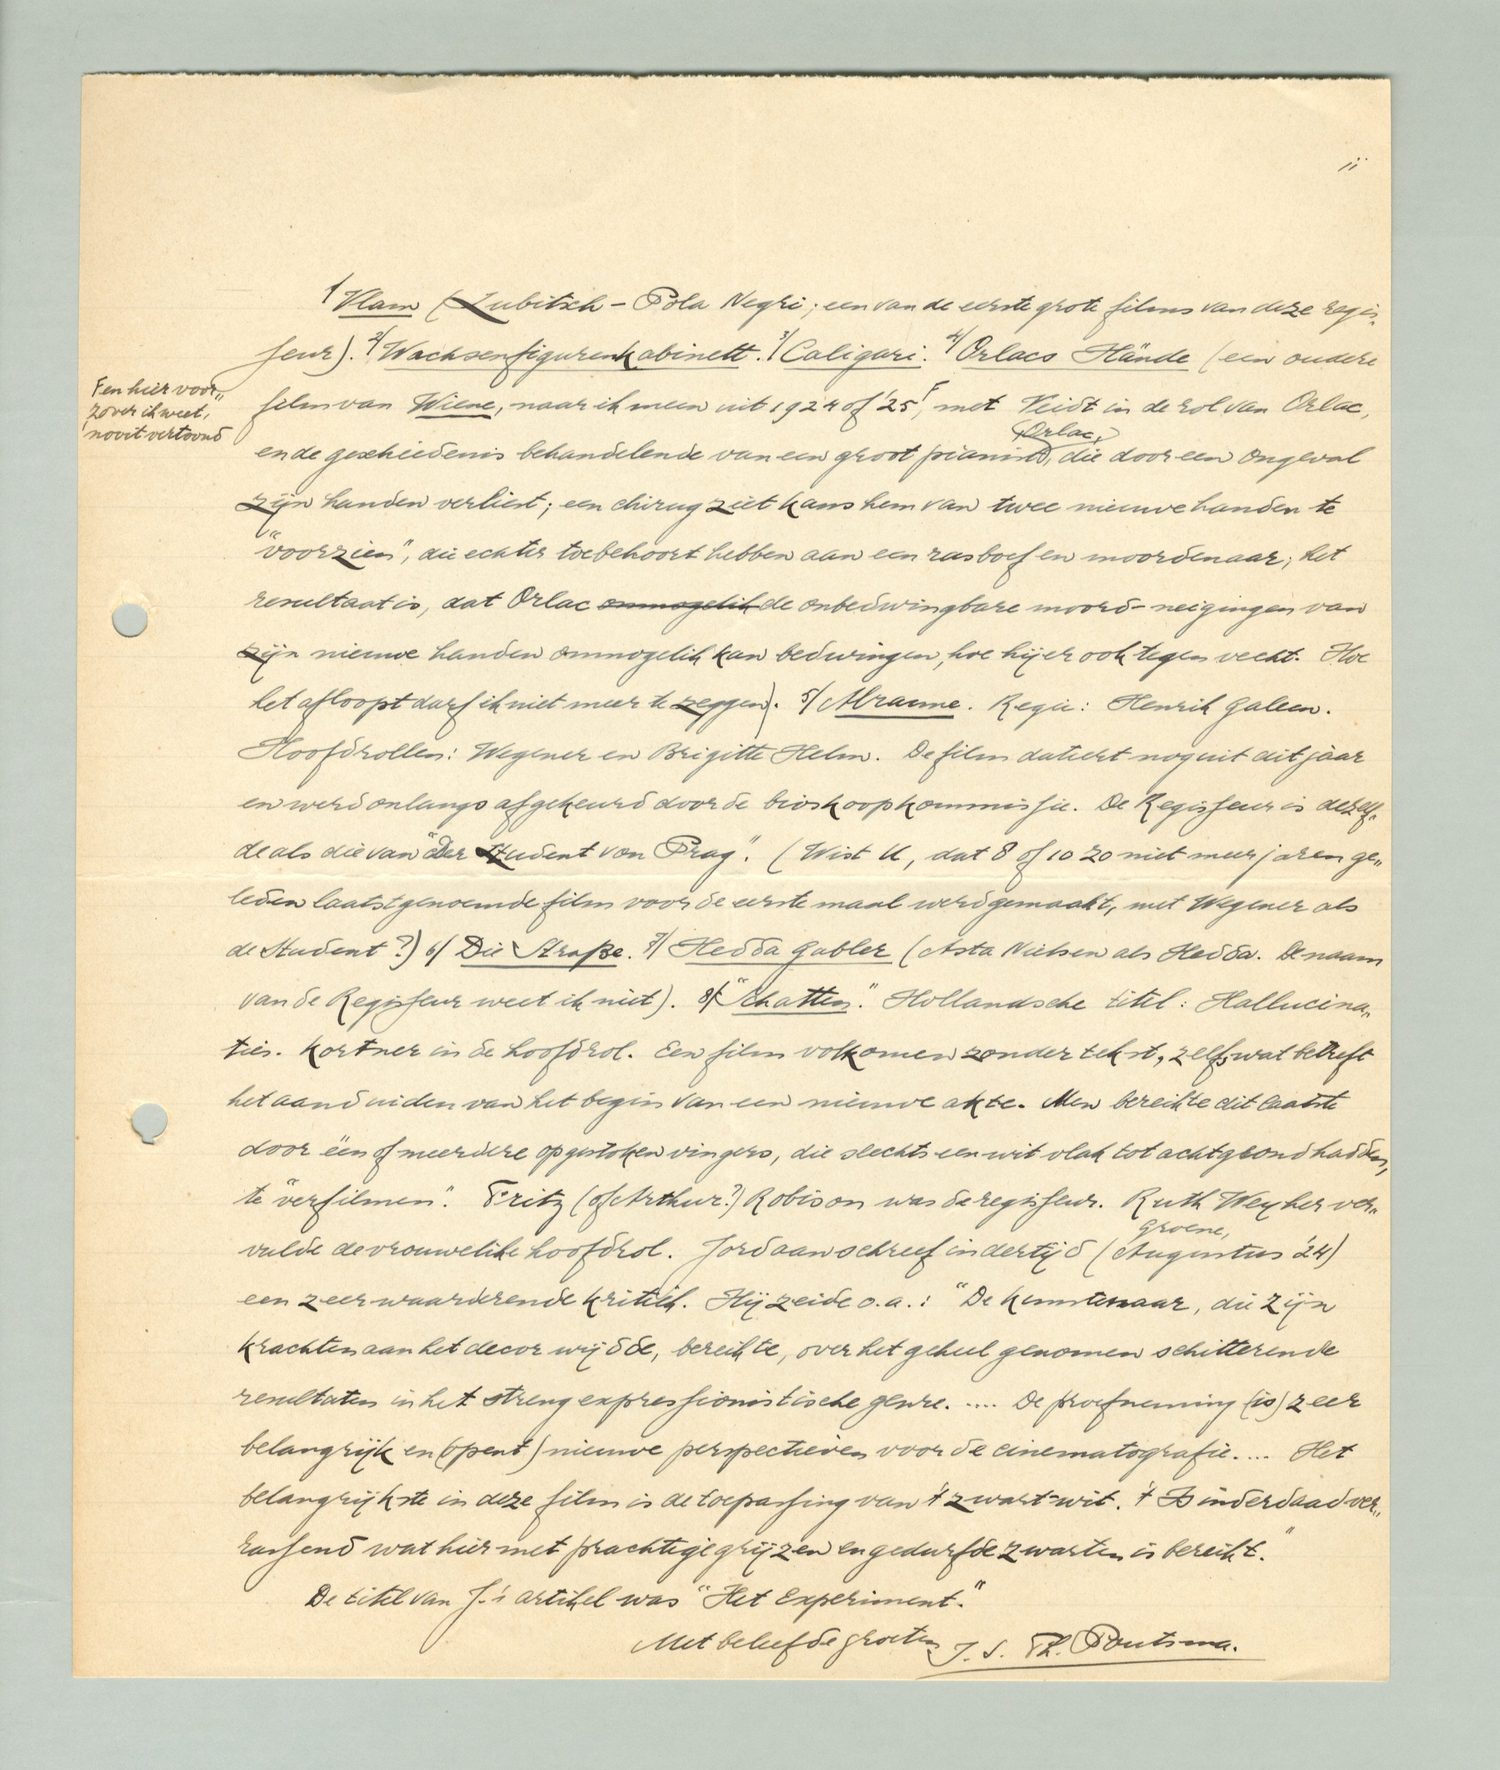 ii
1/ Vlam (Lubitsch - Pola Negri; een van de eerste grote films van deze regis-
seur). 2/ Wachsenfigurenkabinett. 3/ Caligari. 4/ Orlacs Hände (een oudere
Γ en hier voor
zover ik weet,
nooit vertoond
film van Wiene, naar ik meen uit 1924 of '25 Γ, met Veidt in de rol van Orlac,
(Orlac)
en de geschiedenis behandelende van een groot pianist, die door een ongeval
zijn handen verliest; een chirug ziet kans hem van twee nieuwe handen te
"voorzien", die echter toebehoort hebben aan een rasboef en moordenaar; het
resultaat is, dat Orlac onmogelik de onbedwingbare moord-neigingen van
zijn nieuwe handen onmogelik kan bedwingen, hoe hij er ook tegen vecht. Hoe
het afloopt durf ik niet meer te zeggen). 5/ Alraune. Regie: Henrik Galeen.
Hoofdrollen: Wegener en Brigitte Helm. De film dateert nog uit dit jaar
en werd onlangs afgekeurd door de bioskoopkommissie. De Regisseur is dezelf-
de als die van "Der Student von Prag". (Wist U, dat 8 of 10 zo niet meer jaren ge-
leden laatstgenoemde film voor de eerste maal werd gemaakt, met Wegener als
de Student?) 6/ Die Straße. 7/ Hedda Gabler (Asta Nielsen als Hedda. De naam
van de Regisseur weet ik niet). 8/ "Schatten". Hollandsche titel: Hallucina-
ties. Kortner in de hoofdrol. Een film volkomen zonder tekst, zelfs wat betreft
het aanduiden van het begin van een nieuwe akte. Men bereikte dit laatste
door één of meerdere opgestoken vingers, die slechts een wit vlak tot achtgrond hadden,
te "verfilmen". Fritz (of Arthur?) Robison was de regisseur. Ruth Weyher ver-
vulde de vrouwelike hoofdrol. Jordaan schreef indertijd (Groene, Augustus '24)
een zeer waarderende kritiek. Hij zeide o.a.: "De kunstenaar, die zijn
krachten aan het decor wijdde, bereikte, over het geheel genomen schitterende
resultaten in het streng expressionistische genre. .... De proefneming (is) zeer
belangrijk en (opent) nieuwe perspectieven voor de cinematografie.... Het
belangrijkste in deze film is de toepassing van 't zwart-wit. 't Is inderdaad ver-
rassend wat hier met prachtige grijzen en gedurfde zwarten is bereikt."
De titel van J.'s artikel was "Het Experiment".
Met beleefde groeten
J. S. Th. Poutsma.